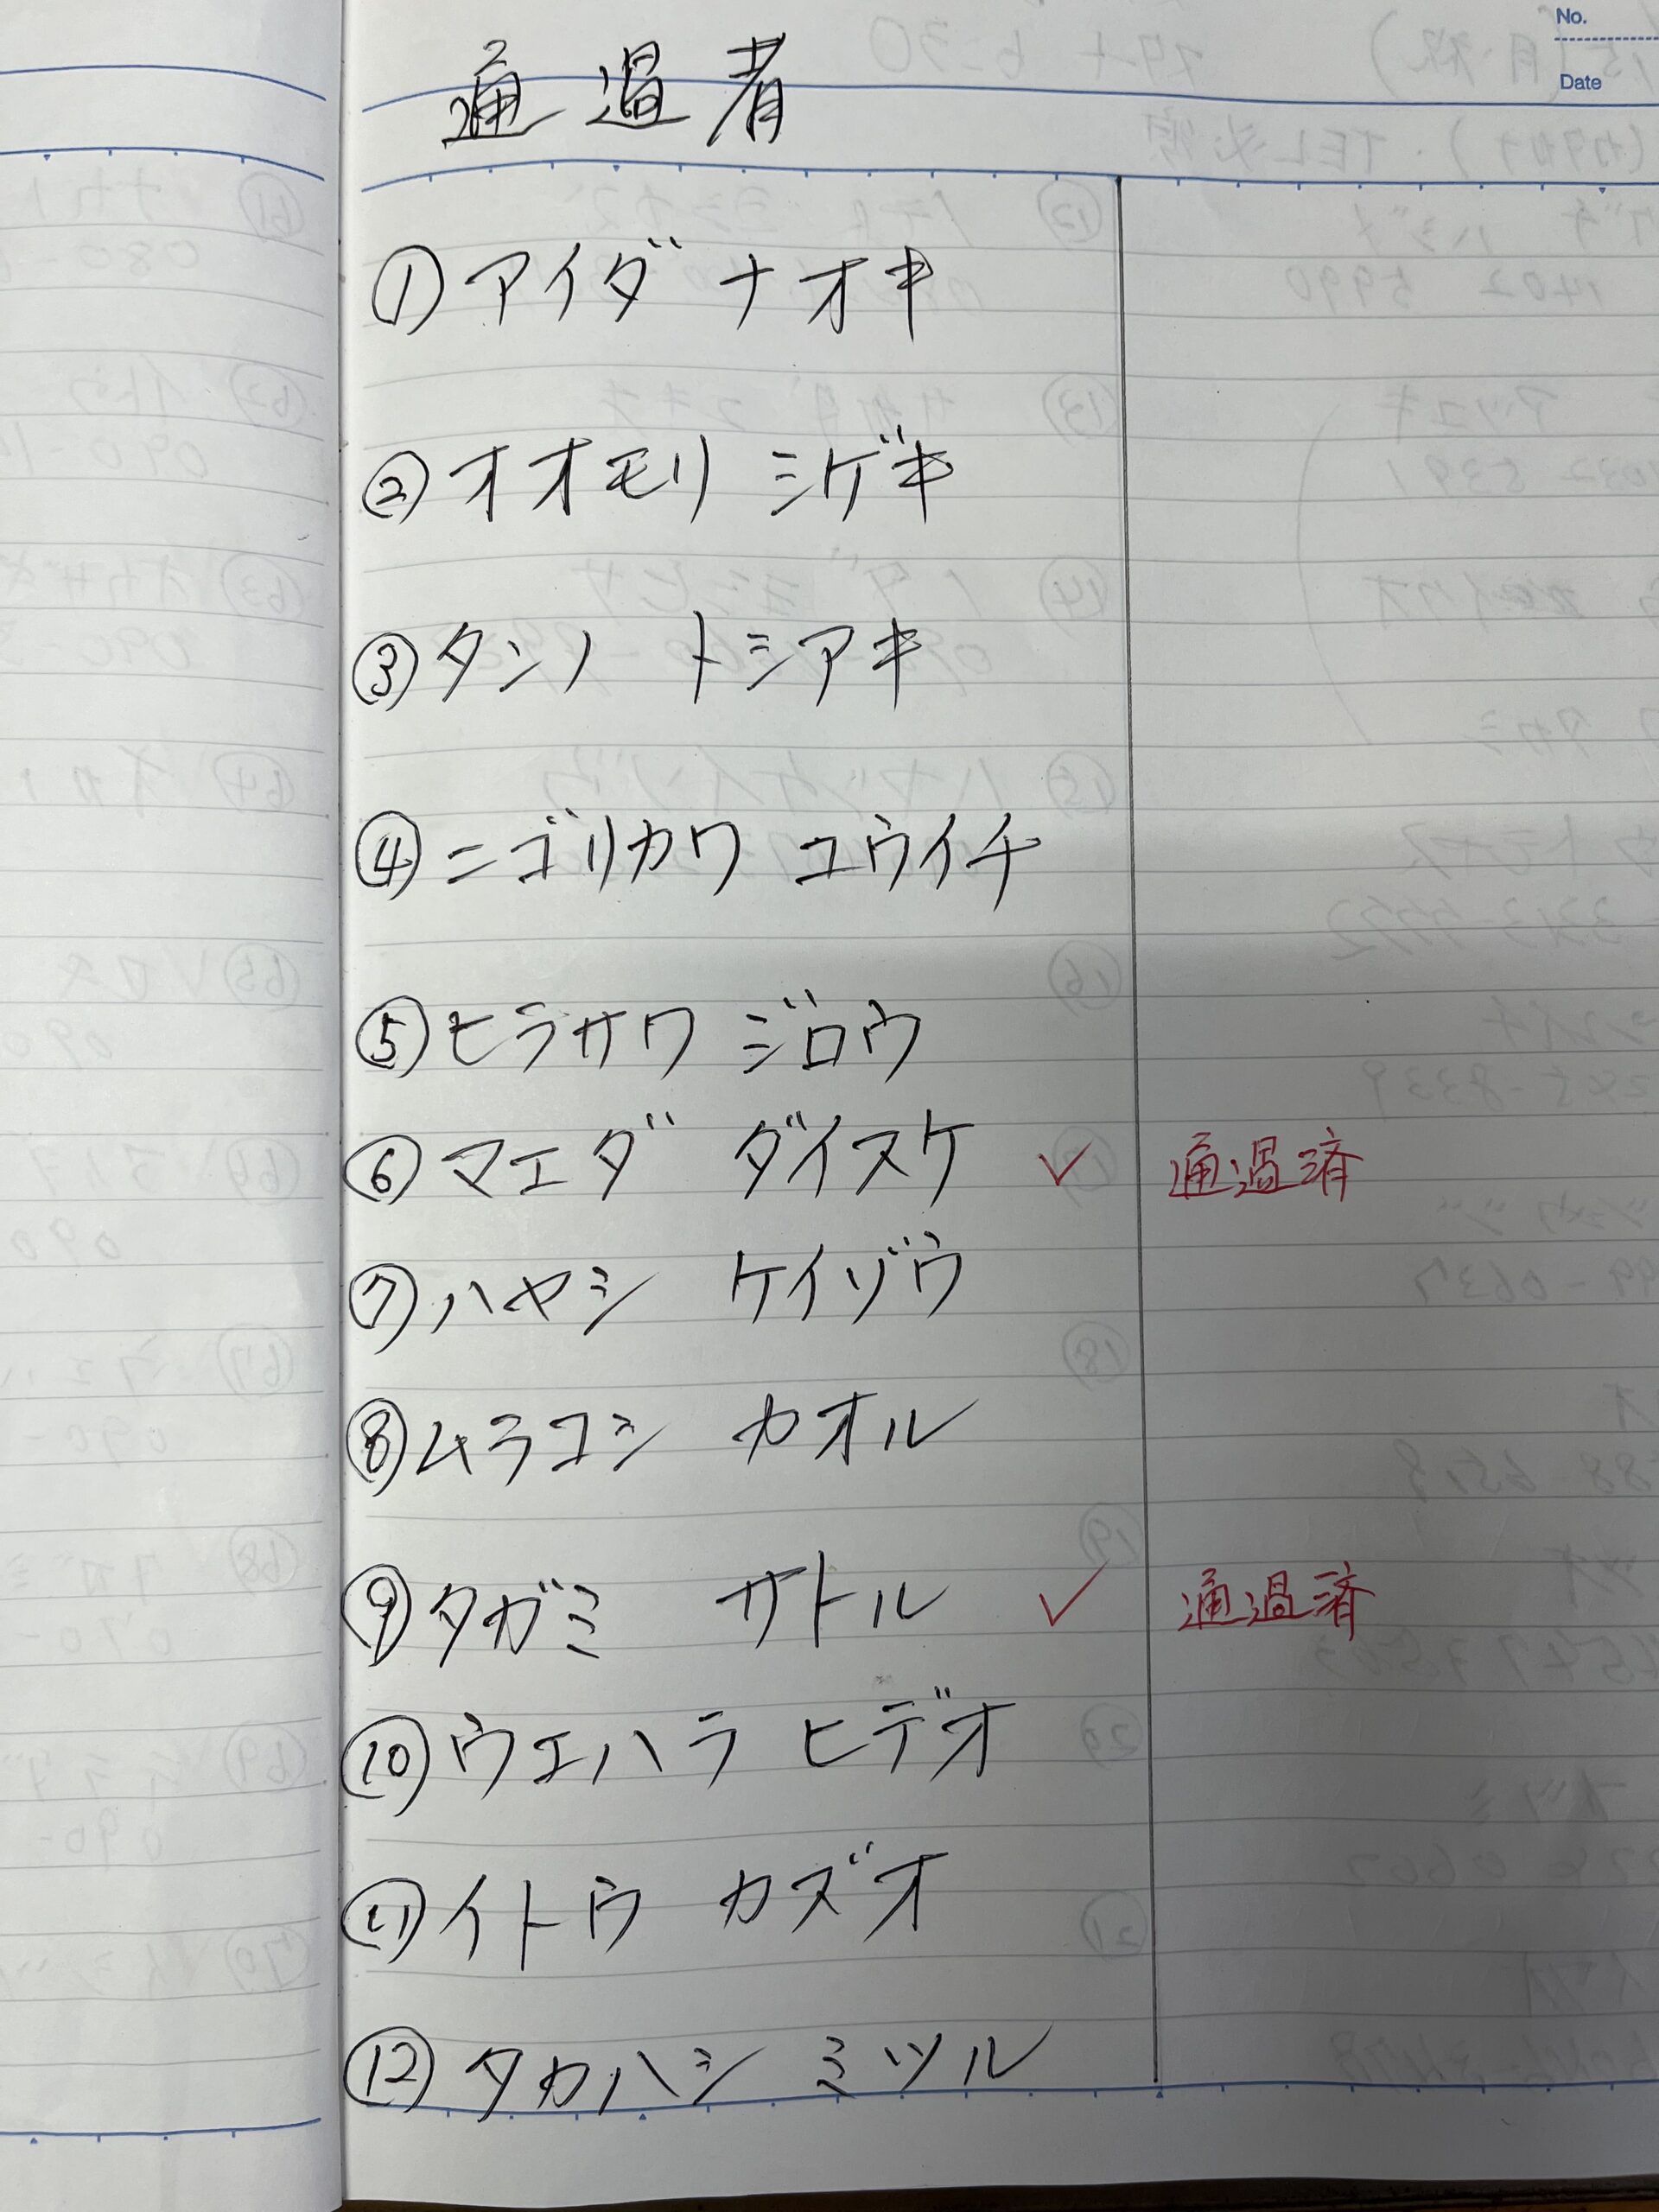 No.
Date
通過者
① アイダ ナオキ
② オオモリ シゲキ
③ タンノ トシアキ
④ ニゴリカワ ユウイチ
⑤ ヒラサワ ジロウ
⑥ マエダ ダイスケ ✓ 通過済
⑦ ハヤシ ケイゾウ
⑧ ムラコシ カオル
⑨ タガミ サトル ✓ 通過済
⑩ ウエハラ ヒデオ
⑪ イトウ カズオ
⑫ タカハシ ミツル